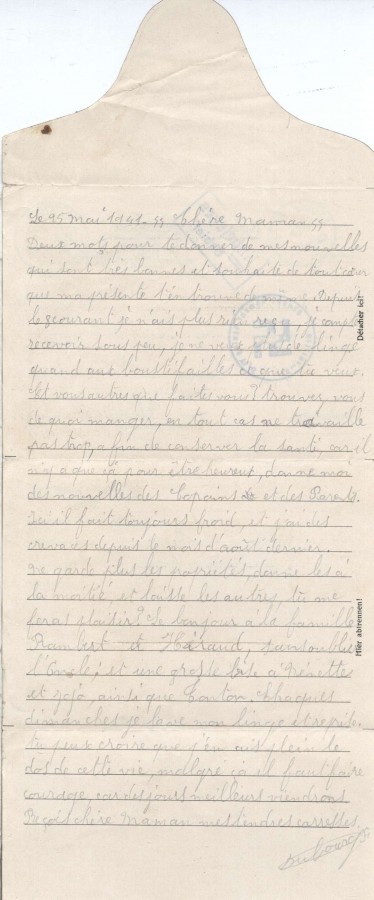 Le 25 Mai 1941. Chère Maman
Deux mots pour te donner de mes nouvelles
qui sont très bonnes et souhaite de tout cœur
que ma présente t'en trouve de même. Depuis
le 3 courant je n'ais plus rien reçu, je compte
recevoir sous peu, je ne veux plus de linge
quand aux boustifailles comme tu veux.
Et vous autres que faites vous? trouvez vous
de quoi manger, en tout cas ne travaille
pas trop, afin de conserver la santé, car il
n'y a que ça pour être heureux, donne moi
des nouvelles des Copains et des Parents.
Ici il fait toujours froid, et j'ai des
crevaces depuis le mois d'août dernier.
Ne garde plus les propriétés, donne les à
la moitié, et laisse les autres, tu me
feras plaisir. Le bonjour à la famille
Rambert et Héraud, sans oublier
l'Oncle, et une grosse bise à
et Jojo, ainsi que Tonton. Chaques
dimanches je lave mon linge et reprise.
tu peux croire que j'en ais plein le
dos de cette vie, malgré ça il faut faire
courage car des jours meilleurs viendrons
Reçois chère Maman mes tendres carresses.
Détacher ici!
Hier abtrennen!